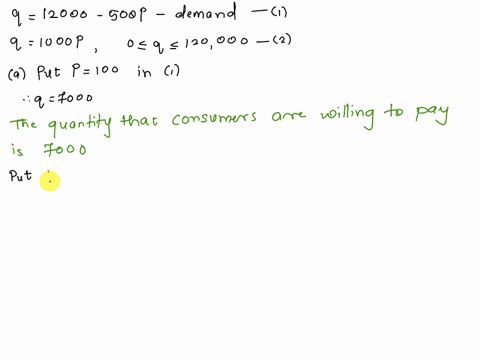 q = 12000 - 500P - demand —(1)
q = 1000P , 0 ≤ q ≤ 120,000 —(2)
(a) Put P = 100 in (1)
∴ q = 7000
The quantity that consumers are willing to pay
is 7000
Put